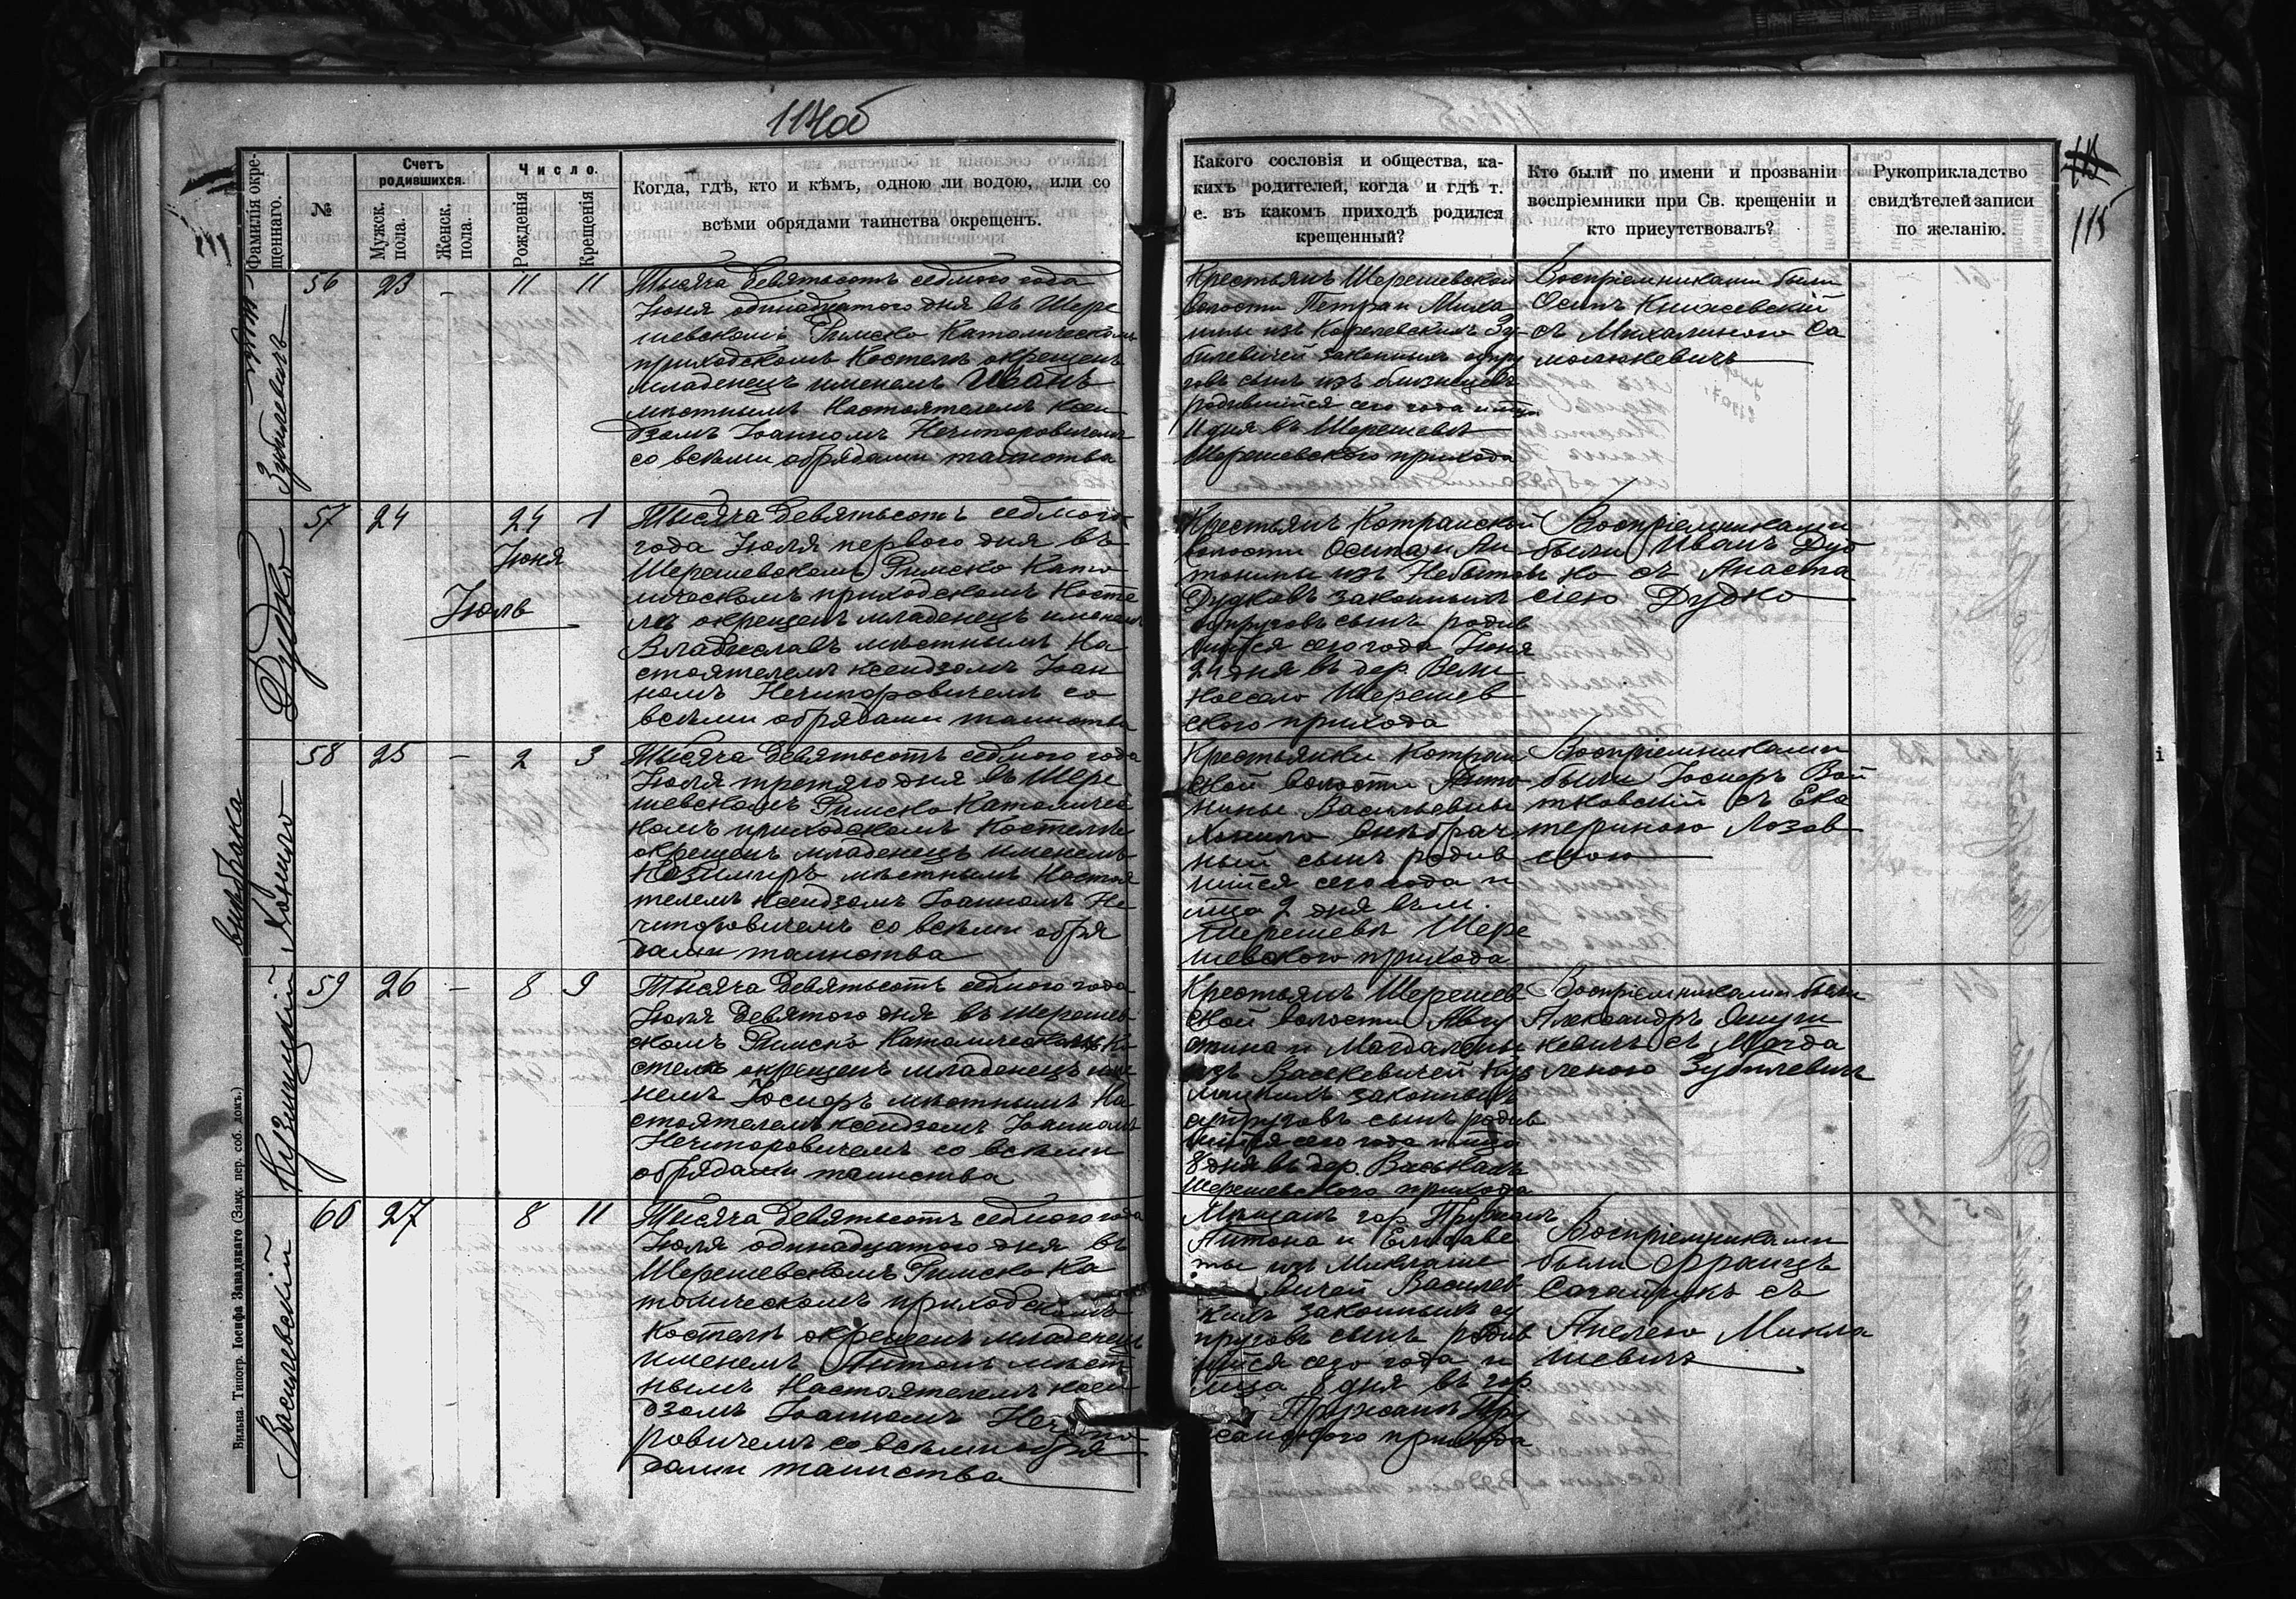 114об
115
Фамилія окрещеннаго.
№
Счетъ родившихся.
Мужск. пола.
Женск. пола.
Число.
Рожденія
Крещенія
Когда, гдѣ, кто и кѣмъ, одною ли водою, или со
всѣми обрядами таинства окрещенъ.
Какого сословія и общества, ка-
кихъ родителей, когда и гдѣ т.
е. въ какомъ приходѣ родился
крещенный?
Кто были по имени и прозванію
воспріемники при Св. крещеніи и
кто присутствовалъ?
Рукоприкладство
свидѣтелей записи
по желанію.
Зубилевичъ
56 23 - 11 11
Тысяча девятьсотъ седмого года
Іюня одинадцатого дня въ Шере
шевскомъ Римско Католическомъ
приходскомъ Костелѣ окрещенъ
младенецъ именемъ Иванъ
мѣстнымъ Настоятелемъ Ксен
дзомъ Іоанномъ Нечипоровичемъ
со всѣми обрядами таинства
Крестьянъ Шерешевской
волости Петра и Миха
лины изъ
билевичей законныхъ супру
говъ сынъ изъ близнецовъ
родившійся сего года и мца
11 дня въ Шерешевѣ
Шерешевского прихода
Воспріемниками были
Осипъ
съ Михалиною Са
мойлкевичъ
Дудко
57 24 24 1
Іюня
Іюль
Тысяча девятьсотъ седмого
года Іюля первого дня въ
Шерешевскомъ Римско Като
лическомъ приходскомъ Косте
лѣ окрещенъ младенецъ именемъ
Владиславъ мѣстнымъ На
стоятелемъ ксендзомъ Іоан
номъ Нечипоровичемъ со
всѣми обрядами таинства
Крестьянъ Котранской
волости Осипа и Ан
тонины изъ
Дудковъ законныхъ
супруговъ сынъ родив
шійся сего года Іюня
24 дня въ дер. Вели
косело Шерешев
ского прихода
Воспріемниками
были Иванъ Дуд
ко съ Анаста
сіею Дудко
внѣбрака
Хонило
58 25 - 2 3
Тысяча девятьсотъ седмого года
Іюля третяго дня въ Шере
шевскомъ Римско Католичес
комъ приходскомъ Костелѣ
окрещенъ младенецъ именемъ
Казимиръ мѣстнымъ Настоя
телемъ ксендзомъ Іоанномъ Не
чипоровичемъ со всѣми обря
дами таинства
Крестьянки Котран
ской волости Анто
нины Васильевны
Хонило внѣбрач
ный сынъ родив
шійся сего года и
мца 2 дня въ м.
Шерешевѣ Шере
шевского прихода
Воспріемниками
были Іосифъ Вой
тковскій съ Ека
териною Лозов
скою
Кузмицкій
59 26 - 8 9
Тысяча девятьсотъ седмого года
Іюля девятого дня въ Шерешев
скомъ Римско Католическомъ Ко
стелѣ окрещенъ младенецъ име
немъ Іосифъ мѣстнымъ На
стоятелемъ ксендзомъ Іоанномъ
Нечипоровичемъ со всѣми
обрядами таинства
Крестьянъ Шерешев
ской волости Авгу
стина и Магдалены
изъ Васькевичей Куз
мицкихъ законныхъ
супруговъ сынъ родив
шійся сего года и мца
8 дня въ дер. Васькахъ
Шерешевского прихода
Воспріемниками были
Александръ
кевичъ съ Магда
леною Зубилевичъ
Василевскій
60 27 8 11
Тысяча девятьсотъ седмого года
Іюля одинадцатого дня въ
Шерешевскомъ Римско Ка
толическомъ приходскомъ
Костелѣ окрещенъ младенецъ
именемъ Антонъ мѣст
нымъ Настоятелемъ ксен
дзомъ Іоанномъ Нечипо
ровичемъ со всѣми обря
дами таинства
Мѣщанъ гор. Пружанъ
Антона и Елизаве
ты изъ Миклаше
вичей Василев
кихъ законныхъ су
пруговъ сынъ родив
шійся сего года и
мца 8 дня въ гор.
Пружанѣ Пру
жанского прихода
Воспріемниками
были Францъ
Сагайчукъ съ
Анелею Микла
шевичъ
Вильна. Типогр. Іосифа Завадзкаго (Замк. пер. соб. домъ.)